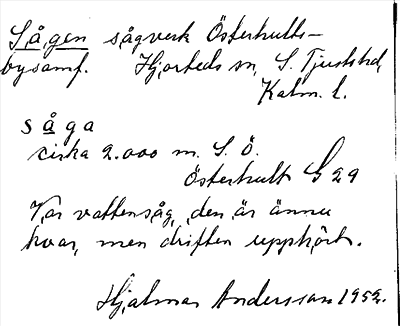 Sågen sågverk Österhults-
bysamf. Hjorteds sn, S. Tjusts hd,
Kalm. l.
såga
cirka 2.000 m. S. Ö.
Österhult G 29
Var vattensåg, den är ännu
kvar, men driften upphört.
Hjalmar Andersson 1952.